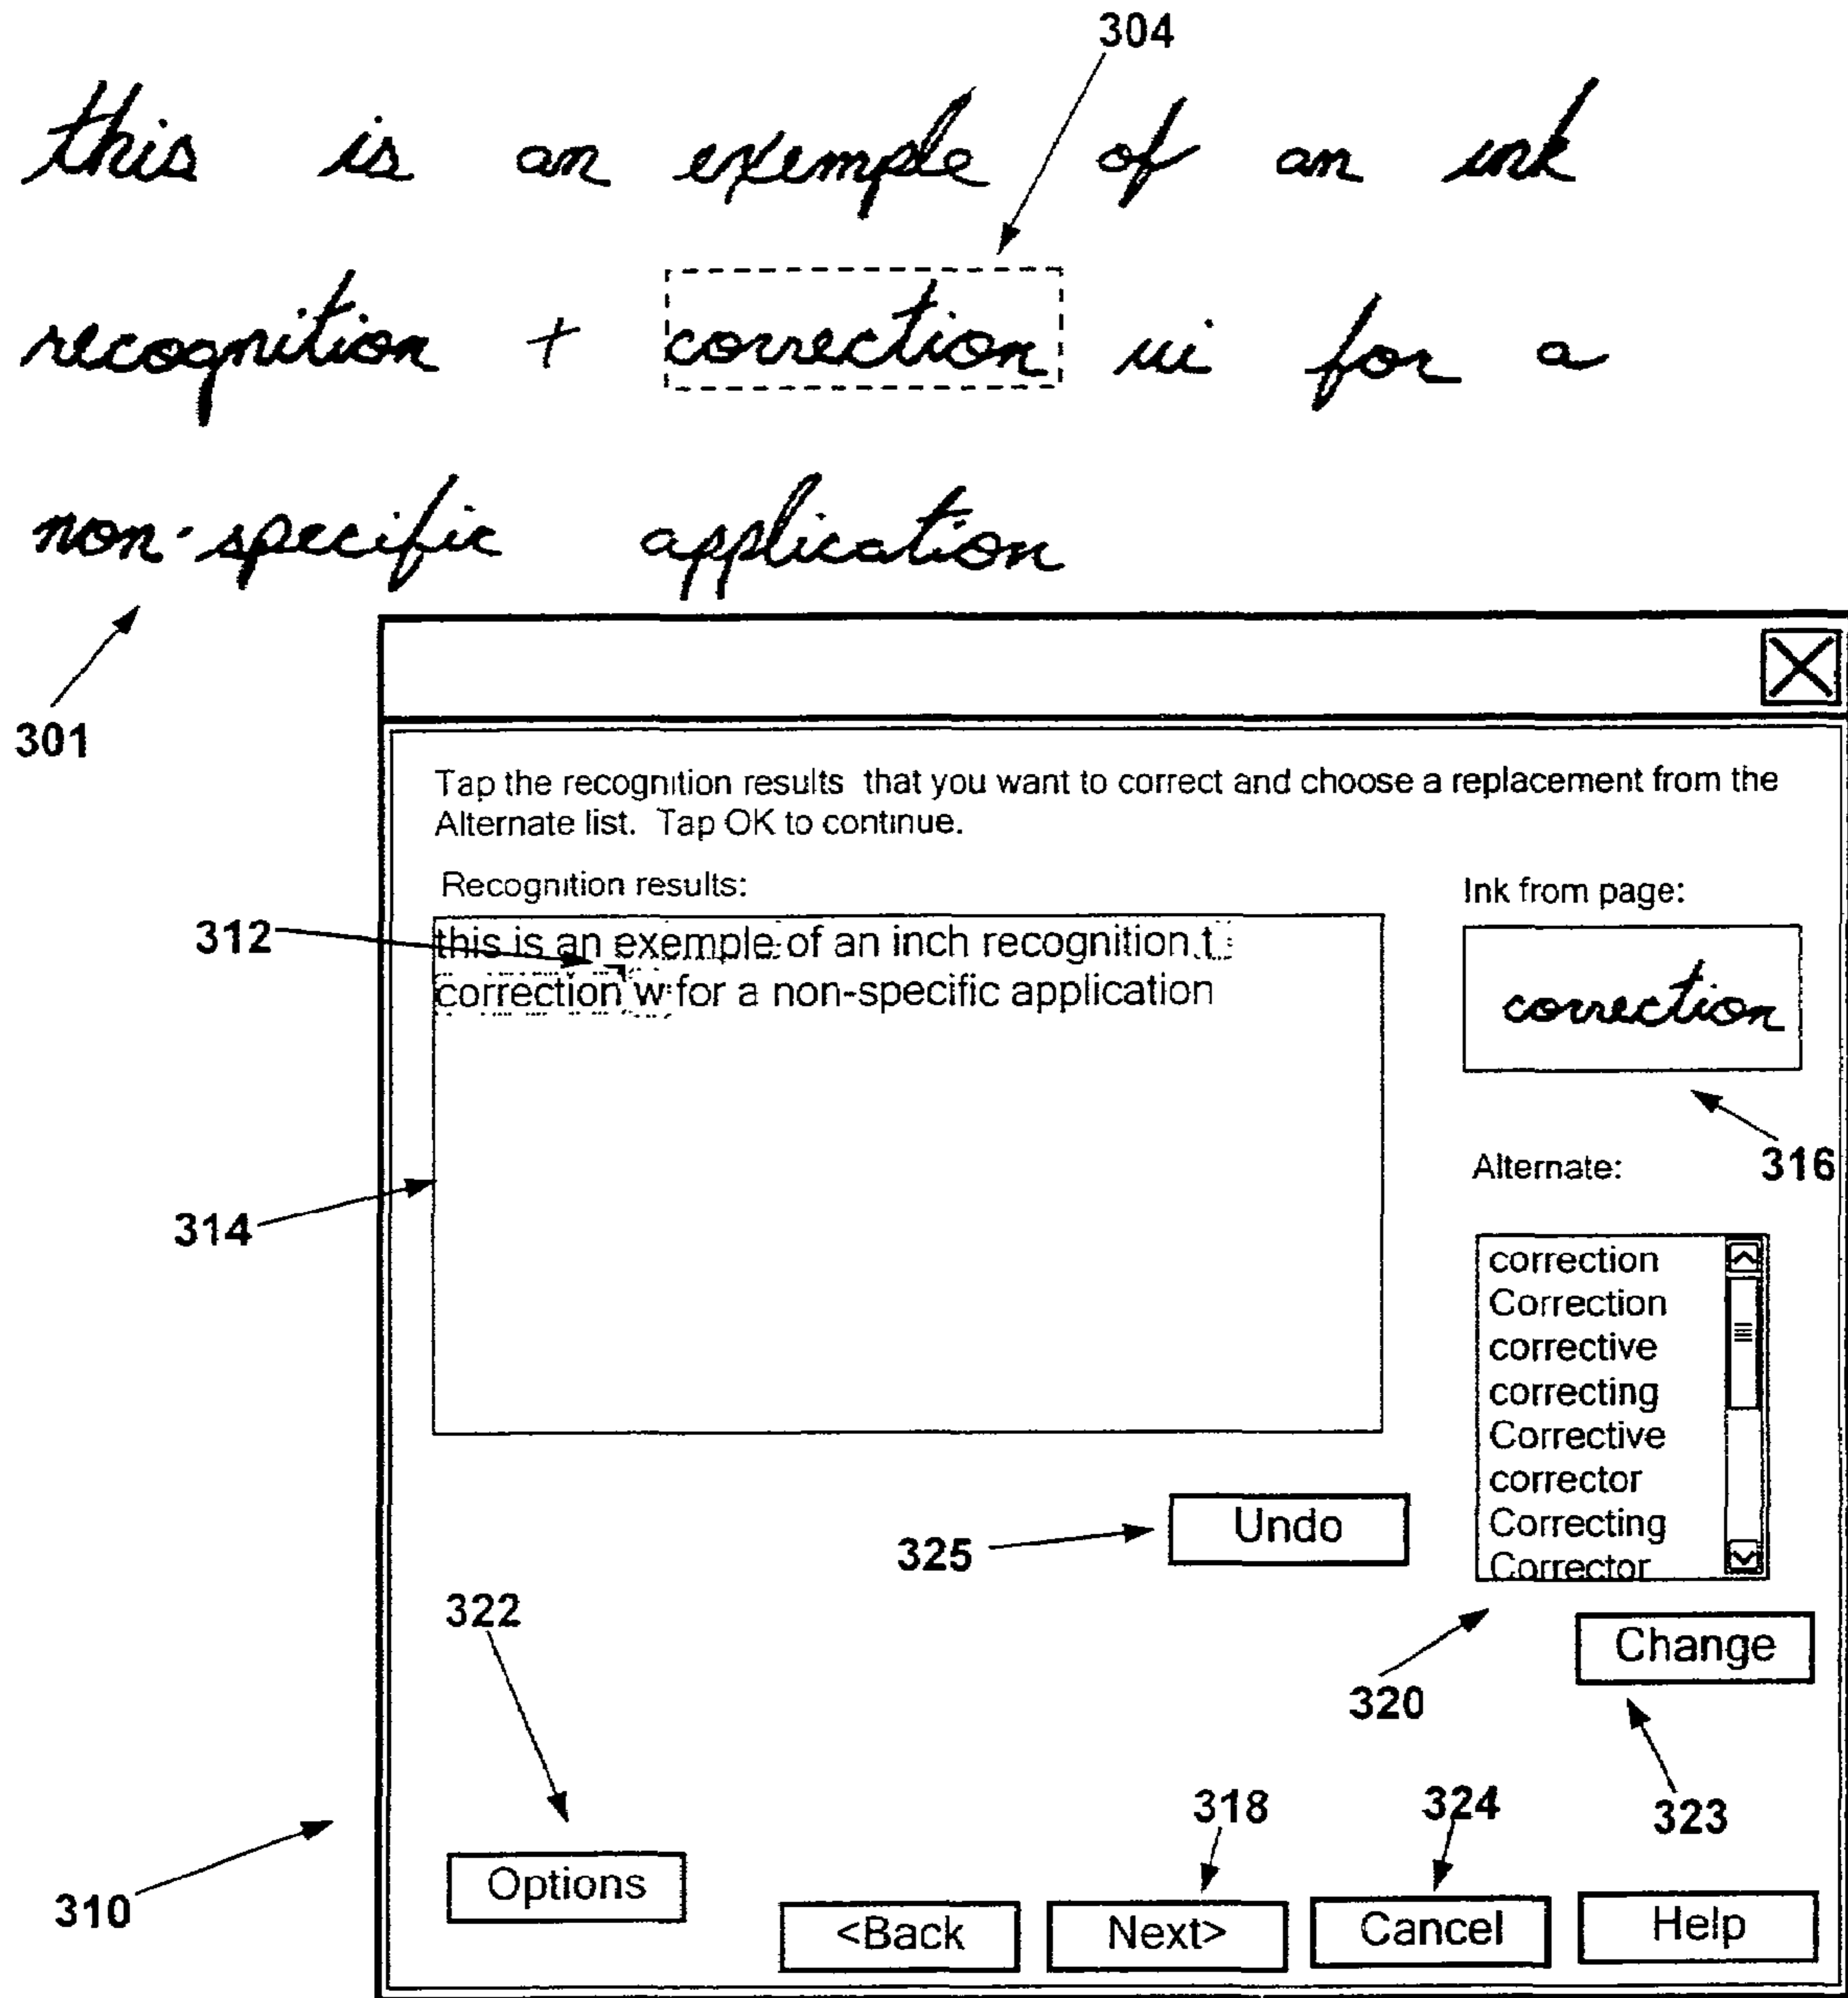 304
this is an exemple of an ink
recognition + correction ui for a
non-specific application
301
Tap the recognition results that you want to correct and choose a replacement from the
Alternate list. Tap OK to continue.
Recognition results:
Ink from page:
312
this is an exemple of an inch recognition t
correction w for a non-specific application
correction
316
Alternate:
314
correction
Correction
corrective
correcting
Corrective
corrector
Correcting
Corrector
Undo
325
322
320
Change
323
318
324
310
Options
<Back
Next>
Cancel
Help